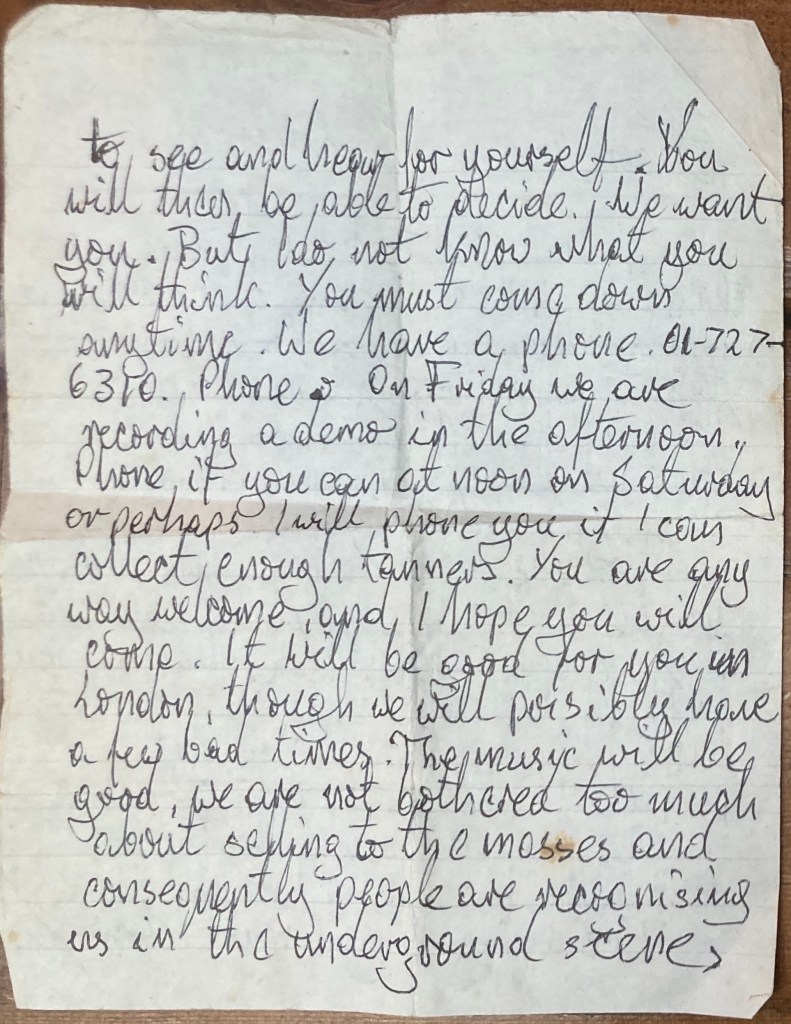 to see and hear for yourself. You
will then be able to decide. We want
you. But I do not know what you
will think. You must come down
anytime. We have a phone. 01-727-
6310. Phone. On Friday we are
recording a demo in the afternoon.
Phone if you can at noon on Saturday
or perhaps I will phone you if I can
collect enough tanners. You are any
way welcome, and I hope you will
come. It will be good for you in
London, though we will possibly have
a few bad times. The music will be
good, we are not bothered too much
about selling to the masses and
consequently people are recognising
us in the underground scene,